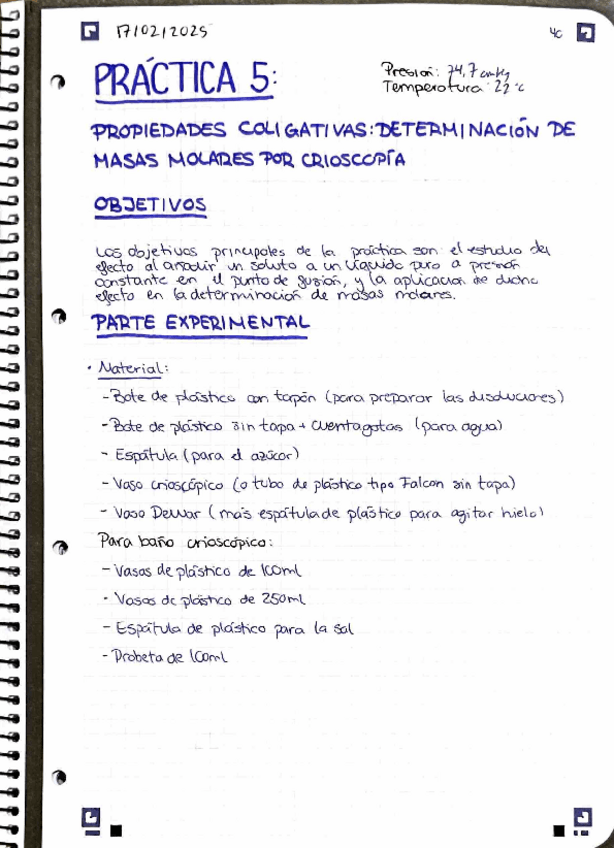 17/02/2025
40
PRÁCTICA 5:
Presión: 74,7 cmHg
Temperatura: 22°C
PROPIEDADES COLIGATIVAS: DETERMINACIÓN DE
MASAS MOLARES POR CRIOSCOPÍA
OBJETIVOS
Los objetivos principales de la práctica son: el estudio del
efecto al añadir un soluto a un líquido puro a presión
constante en el punto de fusión, y la aplicación de dicho
efecto en la determinación de masas molares.
PARTE EXPERIMENTAL
· Material:
- Bote de plástico con tapón (para preparar las disoluciones)
- Bote de plástico sin tapa + cuentagotas (para agua)
- Espátula (para el azúcar)
- Vaso crioscópico (o tubo de plástico tipo Falcon sin tapa)
- Vaso Dewar (más espátula de plástico para agitar hielo)
Para baño crioscópico:
- Vasos de plástico de 100ml
- Vasos de plástico de 250ml
- Espátula de plástico para la sal
- Probeta de 100ml